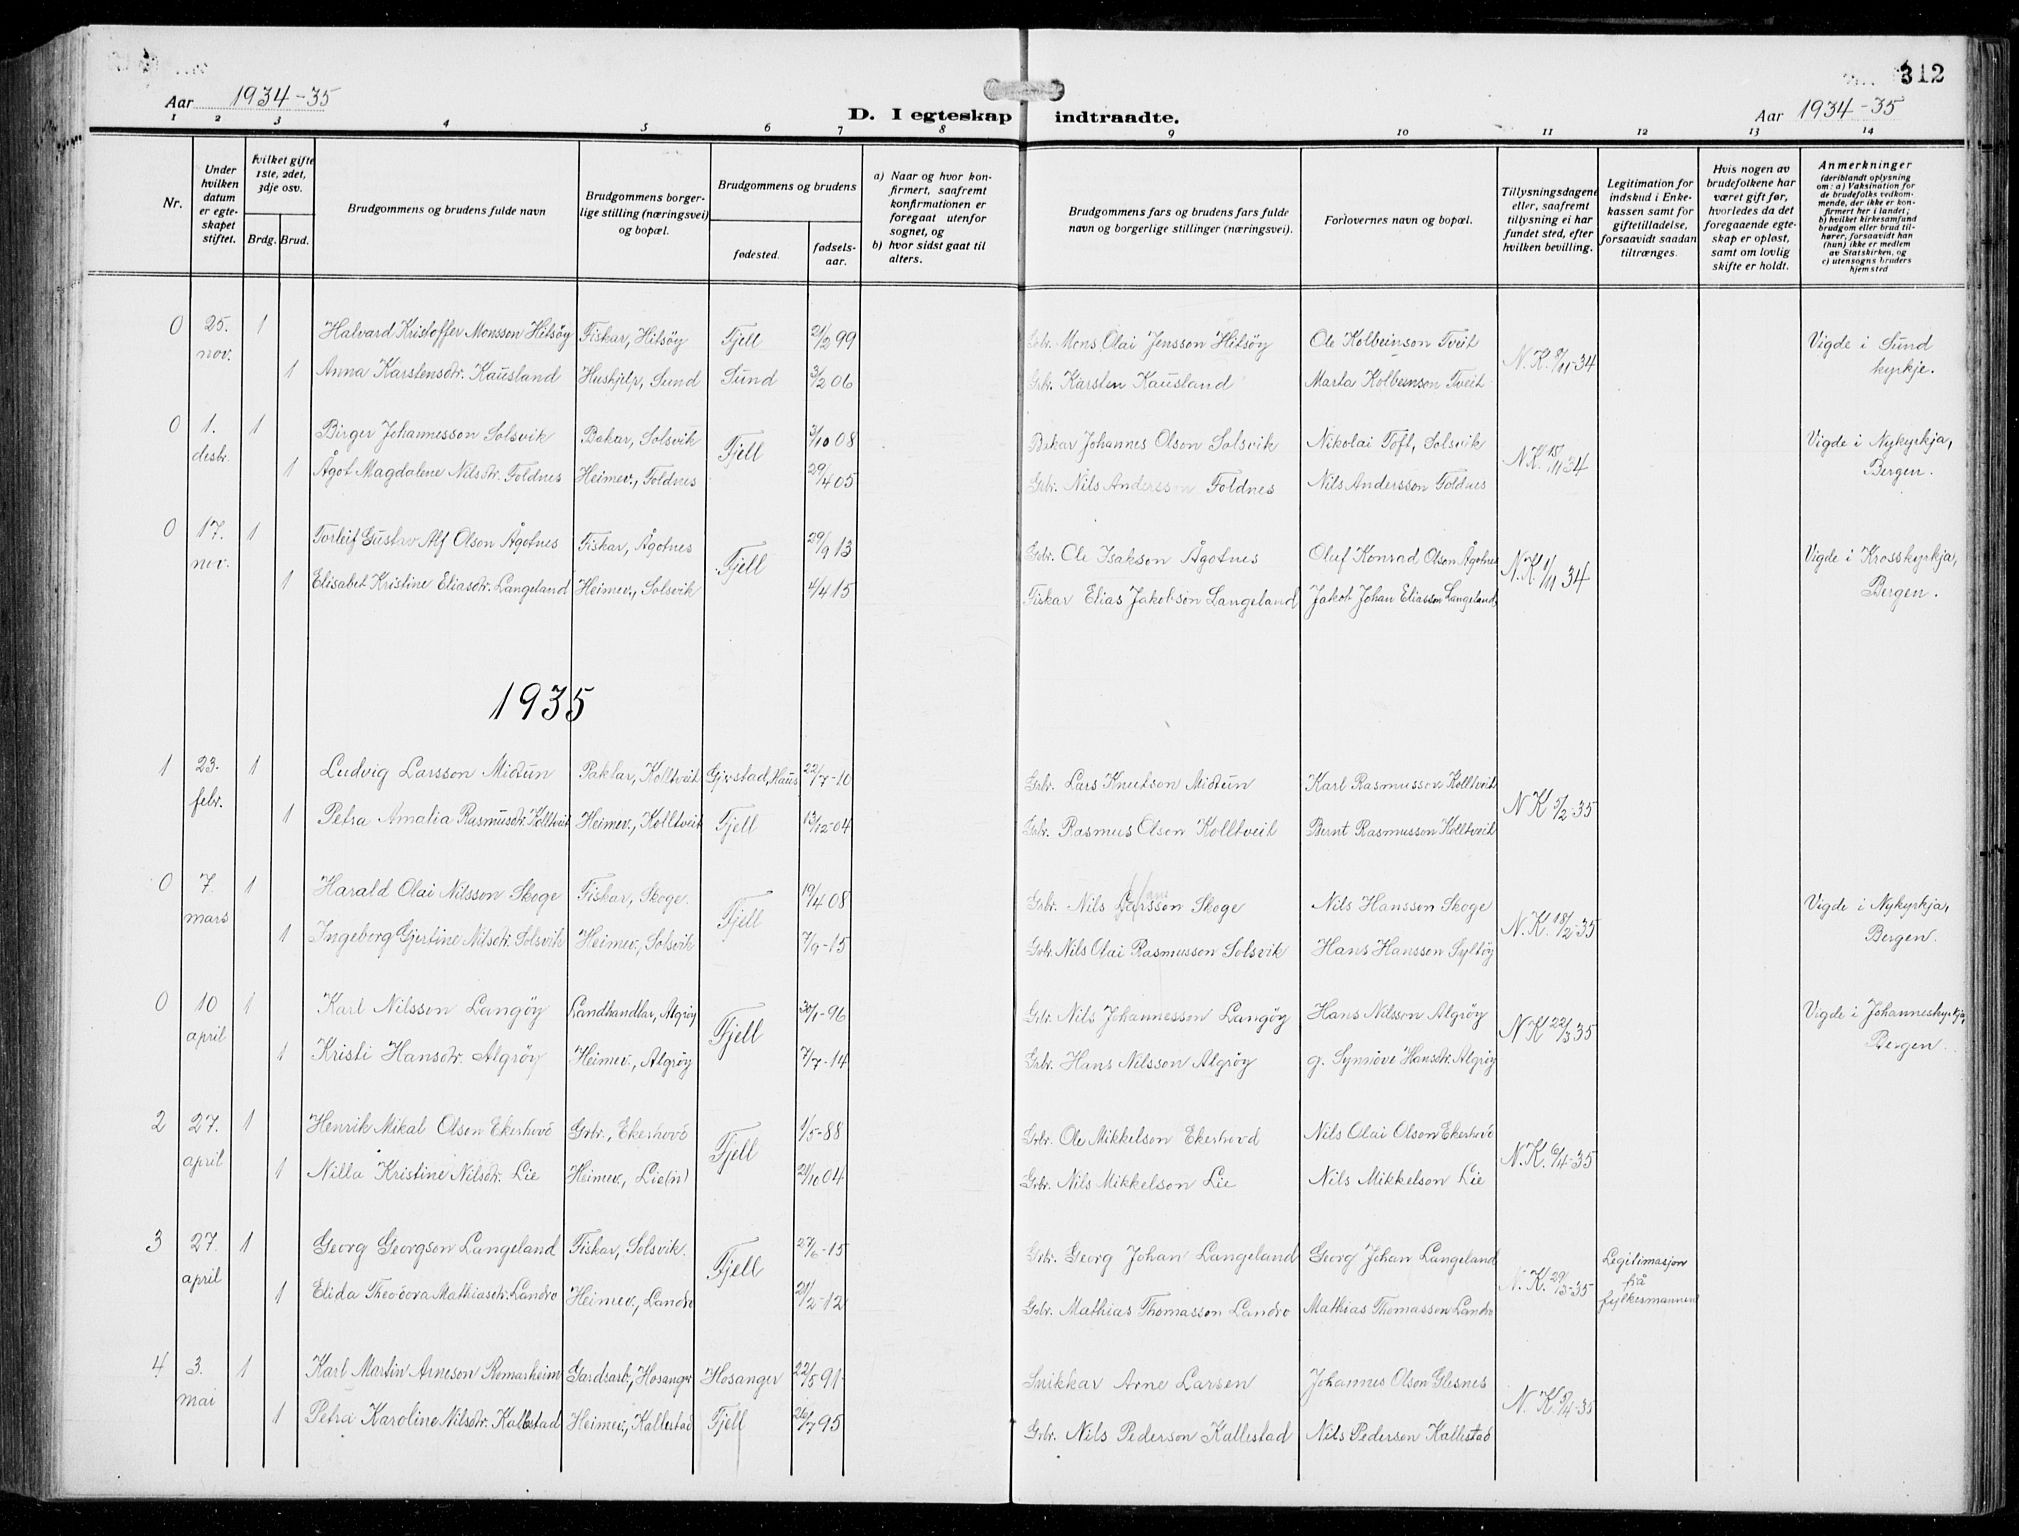 312
Aar 1934-35
D. I egteskap indtraadte.
Aar 1934-35
1 2 3 4 5 6 7 8 9 10 11 12 13 14
Nr.
Under hvilken datum er egte-skapet stiftet.
hvilket gifte 1ste, 2det, 3dje osv.
Brdg. Brud.
Brudgommens og brudens fulde navn
Brudgommens borger-lige stilling (næringsvei) og bopæl.
Brudgommens og brudens
fødested.
fødsels-aar.
a) Naar og hvor kon-firmert, saafremt konfirmationen er foregaat utenfor sognet, og
b) hvor sidst gaat til alters.
Brudgommens fars og brudens fars fulde navn og borgerlige stillinger (næringsvei).
Forlovernes navn og bopæl.
Tillysningsdagene eller, saafremt tillysning ei har fundet sted, efter hvilken bevilling.
Legitimation for indskud i Enke-kassen samt for giftetilladelse, forsaavidt saadan tiltrænges.
Hvis nogen av brudefolkene har været gift før, hvorledes da det foregaaende egte-skap er opløst, samt om lovlig skifte er holdt.
Anmerkninger (deriblandt oplysning om: a) Vaksination for de brudefolks vedkom-mende, der ikke er kon-firmert her i landet; b) hvilket kirkesamfund brudgom eller brud til-hører, forsaavidt han (hun) ikke er medlem av Statskirken, og c) utensogns bruders hjemsted
0 25. nov. 1 Halvard Kristoffer Monsson Hitsøy Fiskar, Hitsøy Fjell 21/2 99 Grbr. Mons Olai Jensson Hitsøy Ole Kolbeinson Tveit N.K. 8/11-34 Vigde i Sund kyrkje.
1 Anna Karstensdtr. Kausland Hushjelp, Sund Sund 3/2 06 Grbr. Karsten Kausland Marta Kolbeinson Tveit
0 1. desbr. 1 Birger Johannesson Solsvik Bakar, Solsvik Fjell 3/10 08 Bakar Johannes Olson Solsvik Nikolai Toft, Solsvik N.K. 15/11 34 Vigde i Nykyrkja, Bergen.
1 Ågot Magdalene Nilsdtr. Foldnes Heimev., Foldnes 29/4 05 Grbr. Nils Andersson Foldnes Nils Andersson Foldnes
0 17. nov. 1 Torleif Gustav Alf Olson Ågotnes Fiskar, Ågotnes Fjell 29/9 13 Grbr. Ole Isakson Ågotnes Oluf Konrad Olson Ågotnes N.K. 1/11 34 Vigde i Krosskyrkja, Bergen.
1 Elisabet Kristine Eliasdtr. Langeland Heimev., Solsvik 4/4 15 Fiskar Elias Jakobson Langeland Jakob Johan Eliasson Langeland,
1935
1 23. febr. 1 Ludvig Larsson Midtun Paktar, Kolltveit Gjerstad, Haus 22/7-10 Grbr. Lars Knutson Midtun Karl Rasmusson Kolltveit N.K. 5/2-35
1 Petra Amalia Rasmusdtr. Kolltveit Heimev., Kolltveit Fjell 13/12-04 Grbr. Rasmus Olson Kolltveit Bernt Rasmusson Kolltveit
0 7. mars 1 Harald Olai Nilsson Skoge Fiskar, Skoge. Fjell 19/4 08 Grbr. Nils Larsson Skoge Nils Hansson Skoge N.K. 18/2-35 Vigde i Nykyrkja, Bergen.
1 Ingeborg Gjertine Nilsdtr. Solsvik Heimev., Solsvik 7/9-15 Grbr. Nils Olai Rasmusson Solsvik Hans Hansson Syltøy
0 10 april 1 Karl Nilsson Langøy Landhandlar, Algrøy Fjell 30/1-96 Grbr. Nils Johannesson Langøy Hans Nilsson Algrøy N.K. 22/3 35 Vigde i Johanneskyrkja, Bergen.
1 Kristi Hansdtr. Algrøy Heimev., Algrøy 7/7-14 Grbr. Hans Nilsson Algrøy g. Synnøve Hansdtr. Algrøy
2 27. april 1 Henrik Mikal Olson Ekerhovd Grbr., Ekerhovd Fjell 1/5-88 Grbr. Ole Mikkelson Ekerhovd Nils Olai Olson Ekerhovd N.K. 6/4-35
1 Nilla Kristine Nilsdtr. Lie Heimev., Lie(n) 21/10 04 Grbr. Nils Mikkelson Lie Nils Mikkelson Lie
3 27. april 1 Georg Georgson Langeland Fiskar, Solsvik. Fjell 27/6-15 Grbr. Georg Johan Langeland Georg Johan Langeland N.K. 29/3-35 Legitimasjon frå fylkesmannen
1 Elida Theodora Mathiasdtr. Landro Heimev., Landro 21/2-12 Grbr. Mathias Thomasson Landro Mathias Thomasson Landro
4 3. mai 1 Karl Martin Arneson Romarheim Gardsarb., Hosanger Hosanger 22/5 91 Snikkar Arne Larsen Johannes Olson Glesnes N.K. 9/4-35
1 Petra Karoline Nilsdtr. Kallestad Heimev., Kallestad Fjell 26/7 95 Grbr. Nils Pederson Kallestad Nils Pederson Kallestad